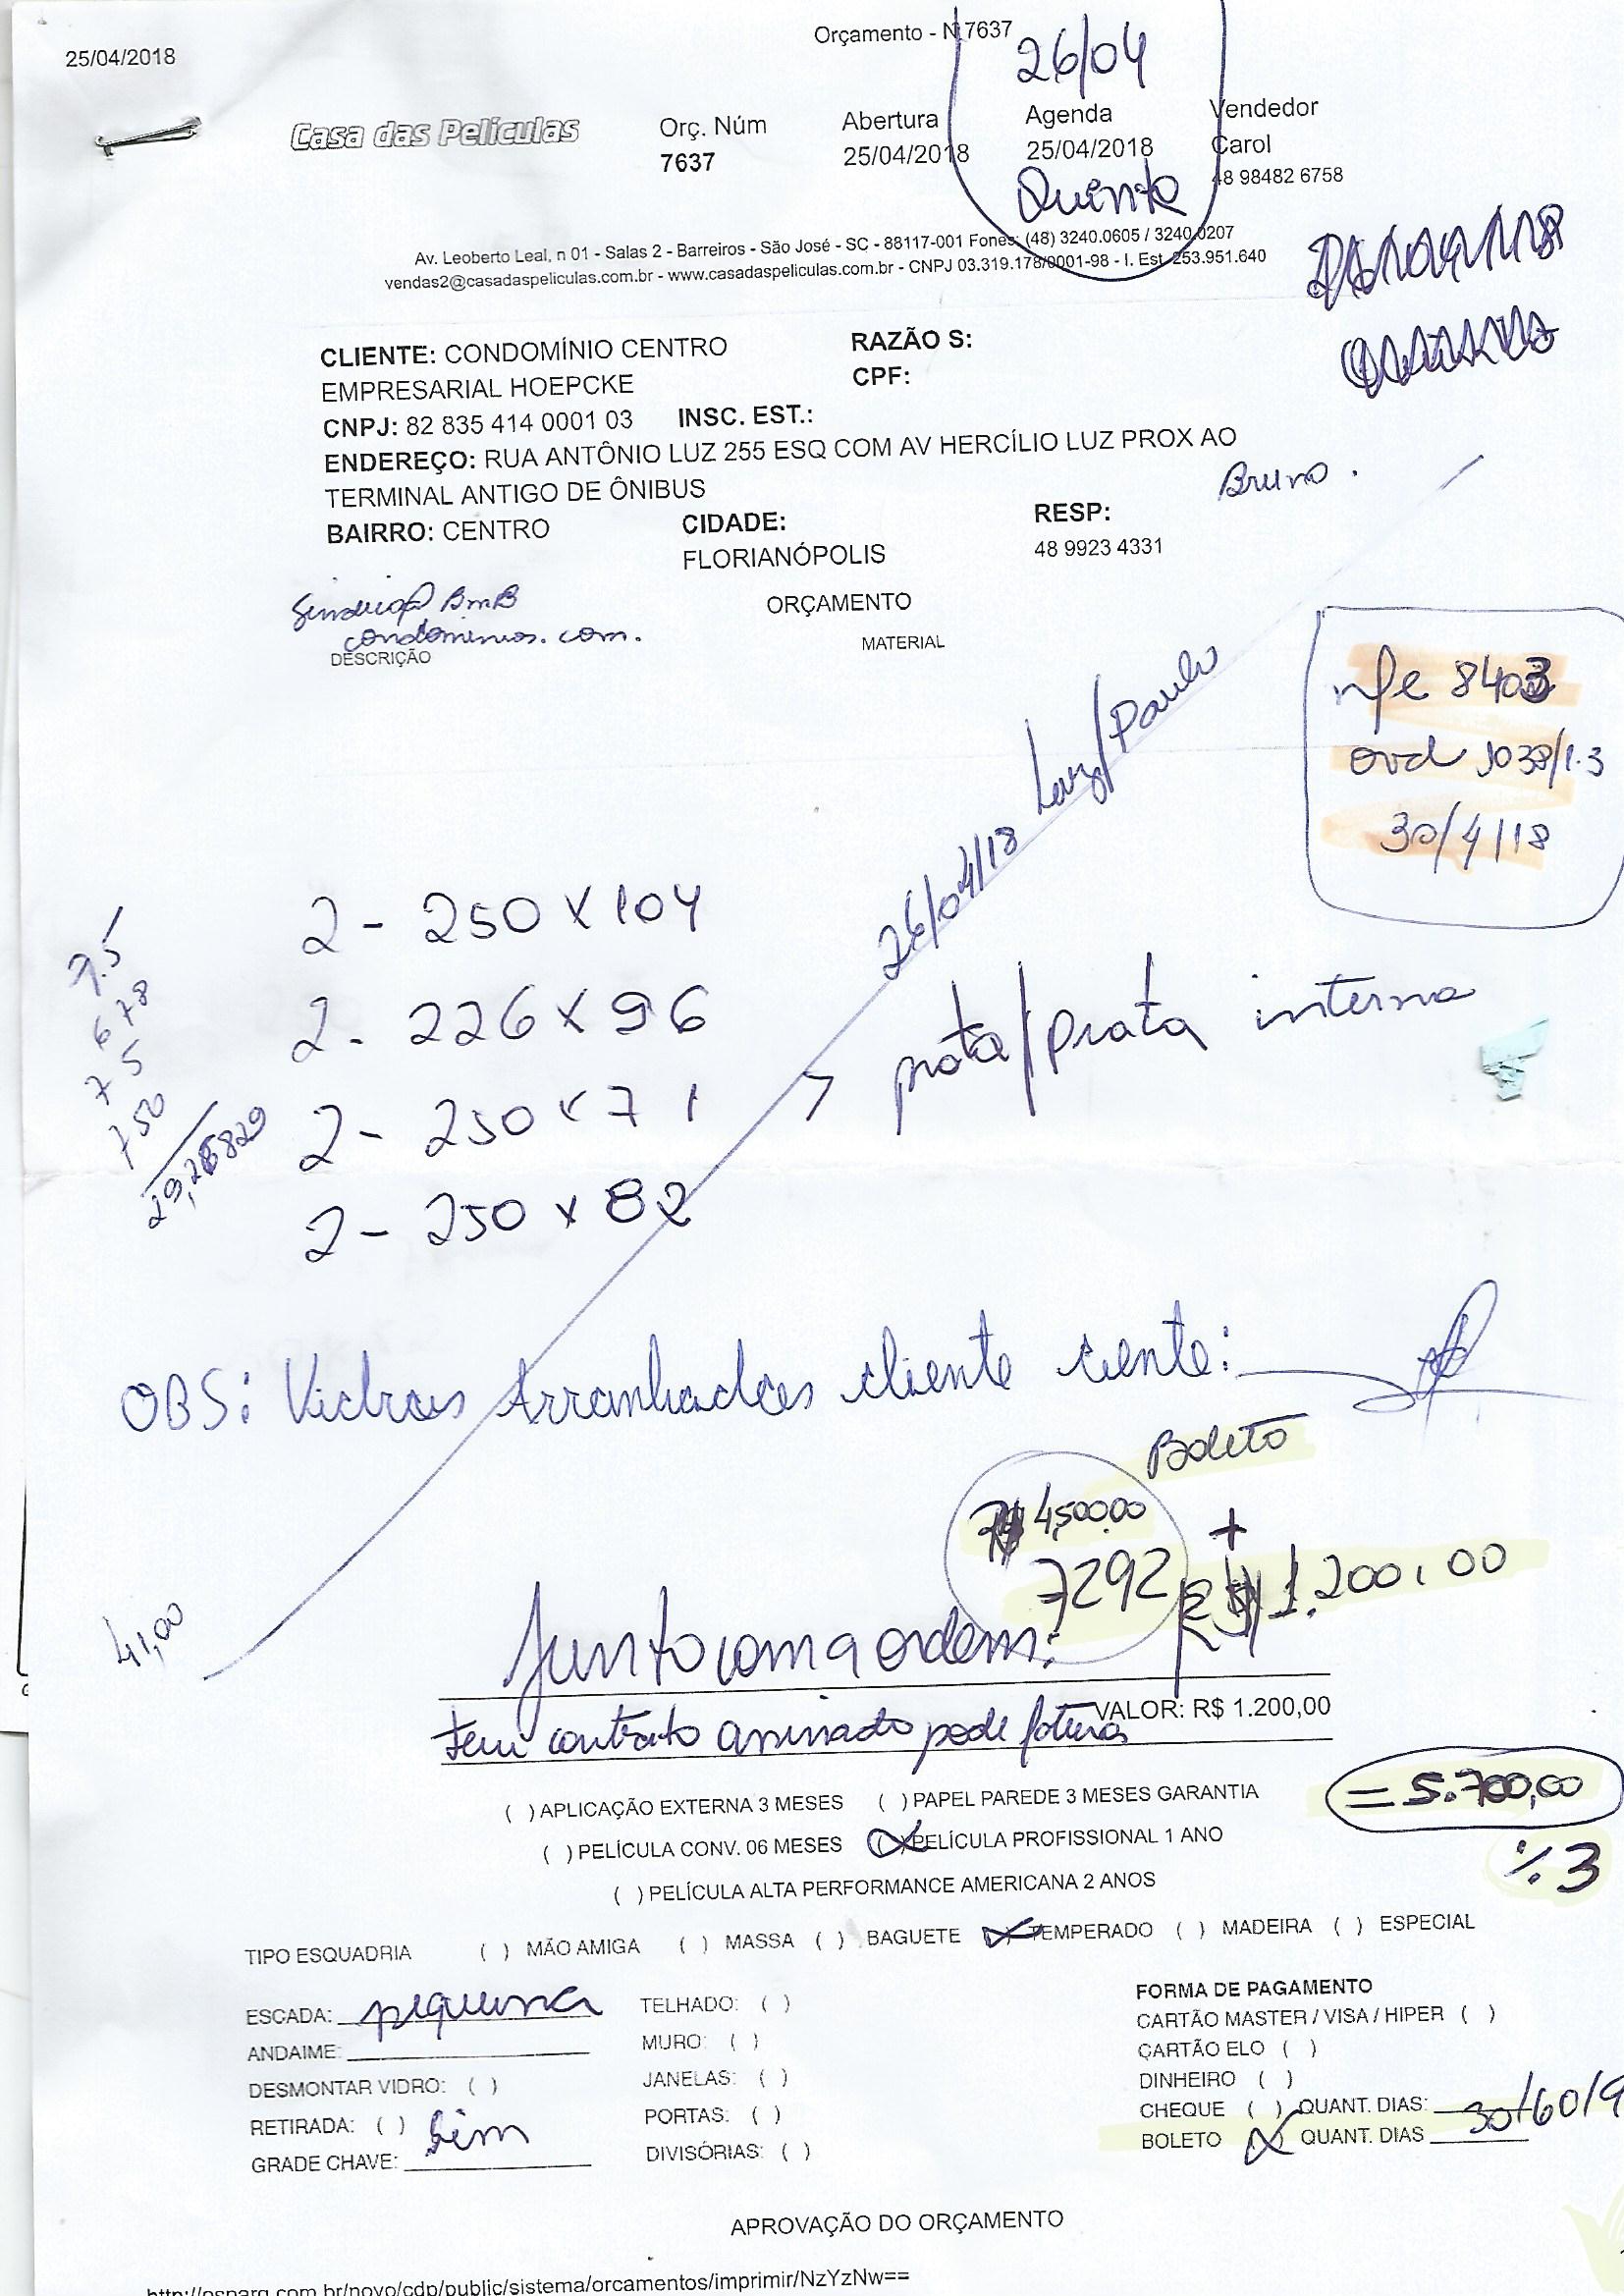 Orçamento - N 7637
25/04/2018
26/04
Casa das Películas
Orç. Núm Abertura Agenda Vendedor
7637 25/04/2018 25/04/2018 Carol
48 98482 6758
Quinta
Av. Leoberto Leal, n 01 - Salas 2 - Barreiros - São José - SC - 88117-001 Fones: (48) 3240.0605 / 3240.0207
vendas2@casadaspeliculas.com.br - www.casadaspeliculas.com.br - CNPJ 03.319.178/0001-98 - I. Est. 253.951.640
CLIENTE: CONDOMÍNIO CENTRO RAZÃO S:
EMPRESARIAL HOEPCKE CPF:
CNPJ: 82 835 414 0001 03 INSC. EST.:
ENDEREÇO: RUA ANTÔNIO LUZ 255 ESQ COM AV HERCÍLIO LUZ PROX AO
TERMINAL ANTIGO DE ÔNIBUS
Bruno.
BAIRRO: CENTRO CIDADE: RESP:
FLORIANÓPOLIS 48 9923 4331
BMB
condominios.com.
ORÇAMENTO
DESCRIÇÃO MATERIAL
nfe 8403
ord 1038/1.3
30/4/18
26/04/18 Luiz/Paulo
2 - 250 x 104
2 - 226 x 96
2 - 250 x 71
2 - 250 x 82
> prata/prata interna
7.5
678
75
750
OBS: Vidros Arranhados cliente ciente:
Boleto
R$ 4,500.00 +
7292 R$ 1.200,00
41,00
Junto com a ordem:
VALOR: R$ 1.200,00
Tem contrato assinado pode fatura
= 5.700,00
÷ 3
( ) APLICAÇÃO EXTERNA 3 MESES ( ) PAPEL PAREDE 3 MESES GARANTIA
( ) PELÍCULA CONV. 06 MESES (X) PELÍCULA PROFISSIONAL 1 ANO
( ) PELÍCULA ALTA PERFORMANCE AMERICANA 2 ANOS
TIPO ESQUADRIA ( ) MÃO AMIGA ( ) MASSA ( ) BAGUETE (X) TEMPERADO ( ) MADEIRA ( ) ESPECIAL
ESCADA: pequena
ANDAIME:
DESMONTAR VIDRO: ( )
RETIRADA: ( ) Sim
GRADE CHAVE:
TELHADO: ( )
MURO: ( )
JANELAS: ( )
PORTAS: ( )
DIVISÓRIAS: ( )
FORMA DE PAGAMENTO
CARTÃO MASTER / VISA / HIPER ( )
CARTÃO ELO ( )
DINHEIRO ( )
CHEQUE ( ) QUANT. DIAS:
BOLETO (X) QUANT. DIAS 30/60/9
APROVAÇÃO DO ORÇAMENTO
http://osparq.com.br/novo/cdp/public/sistema/orcamentos/imprimir/NzYzNw==